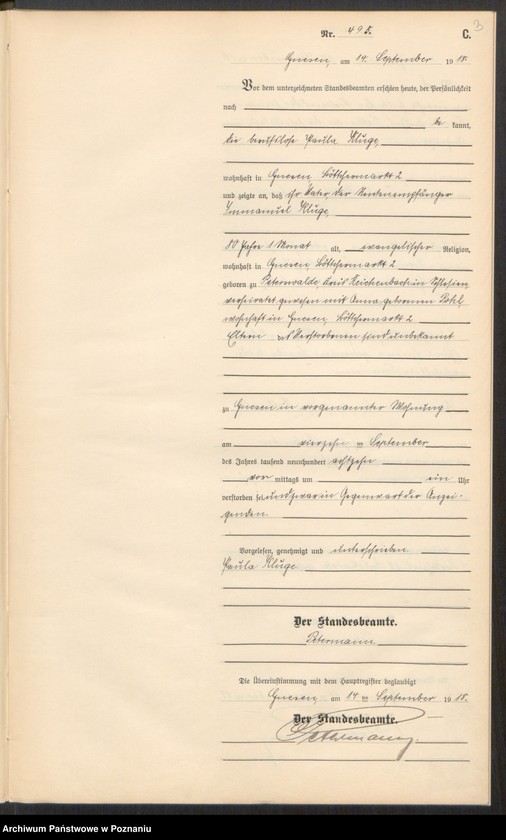 3
Nr. 495.
C.
Gnesen, am 14. September 1918.
Vor dem unterzeichneten Standesbeamten erschien heute, der Persönlichkeit
nach
be kannt,
die berufslose Paula Kluge,
wohnhaft in Gnesen, Böttchermarkt 2
und zeigte an, daß ihr Vater, der Rentenempfänger
Immanuel Kluge,
80 Jahre 1 Monat alt, evangelischer Religion,
wohnhaft in Gnesen Böttchermarkt 2
geboren zu Peterswalde, Kreis Reichenbach in Schlesien,
verheiratet gewesen mit Anna geborenen
wohnhaft in Gnesen, Böttchermarkt 2
Eltern des Verstorbenen sind unbekannt
zu Gnesen in vorgenannter Wohnung
am vierzehn ten September
des Jahres tausend neunhundert achtzehn
vor mittags um ein Uhr
verstorben sei und zwar in Gegenwart der Anzei-
genden.
Vorgelesen, genehmigt und unterschrieben
Paula Kluge
Der Standesbeamte.
Petermann.
Die Übereinstimmung mit dem Hauptregister beglaubigt
Gnesen, am 14 ten September 1918.
Der Standesbeamte.
Petermann.
Archiwum Państwowe w Poznaniu